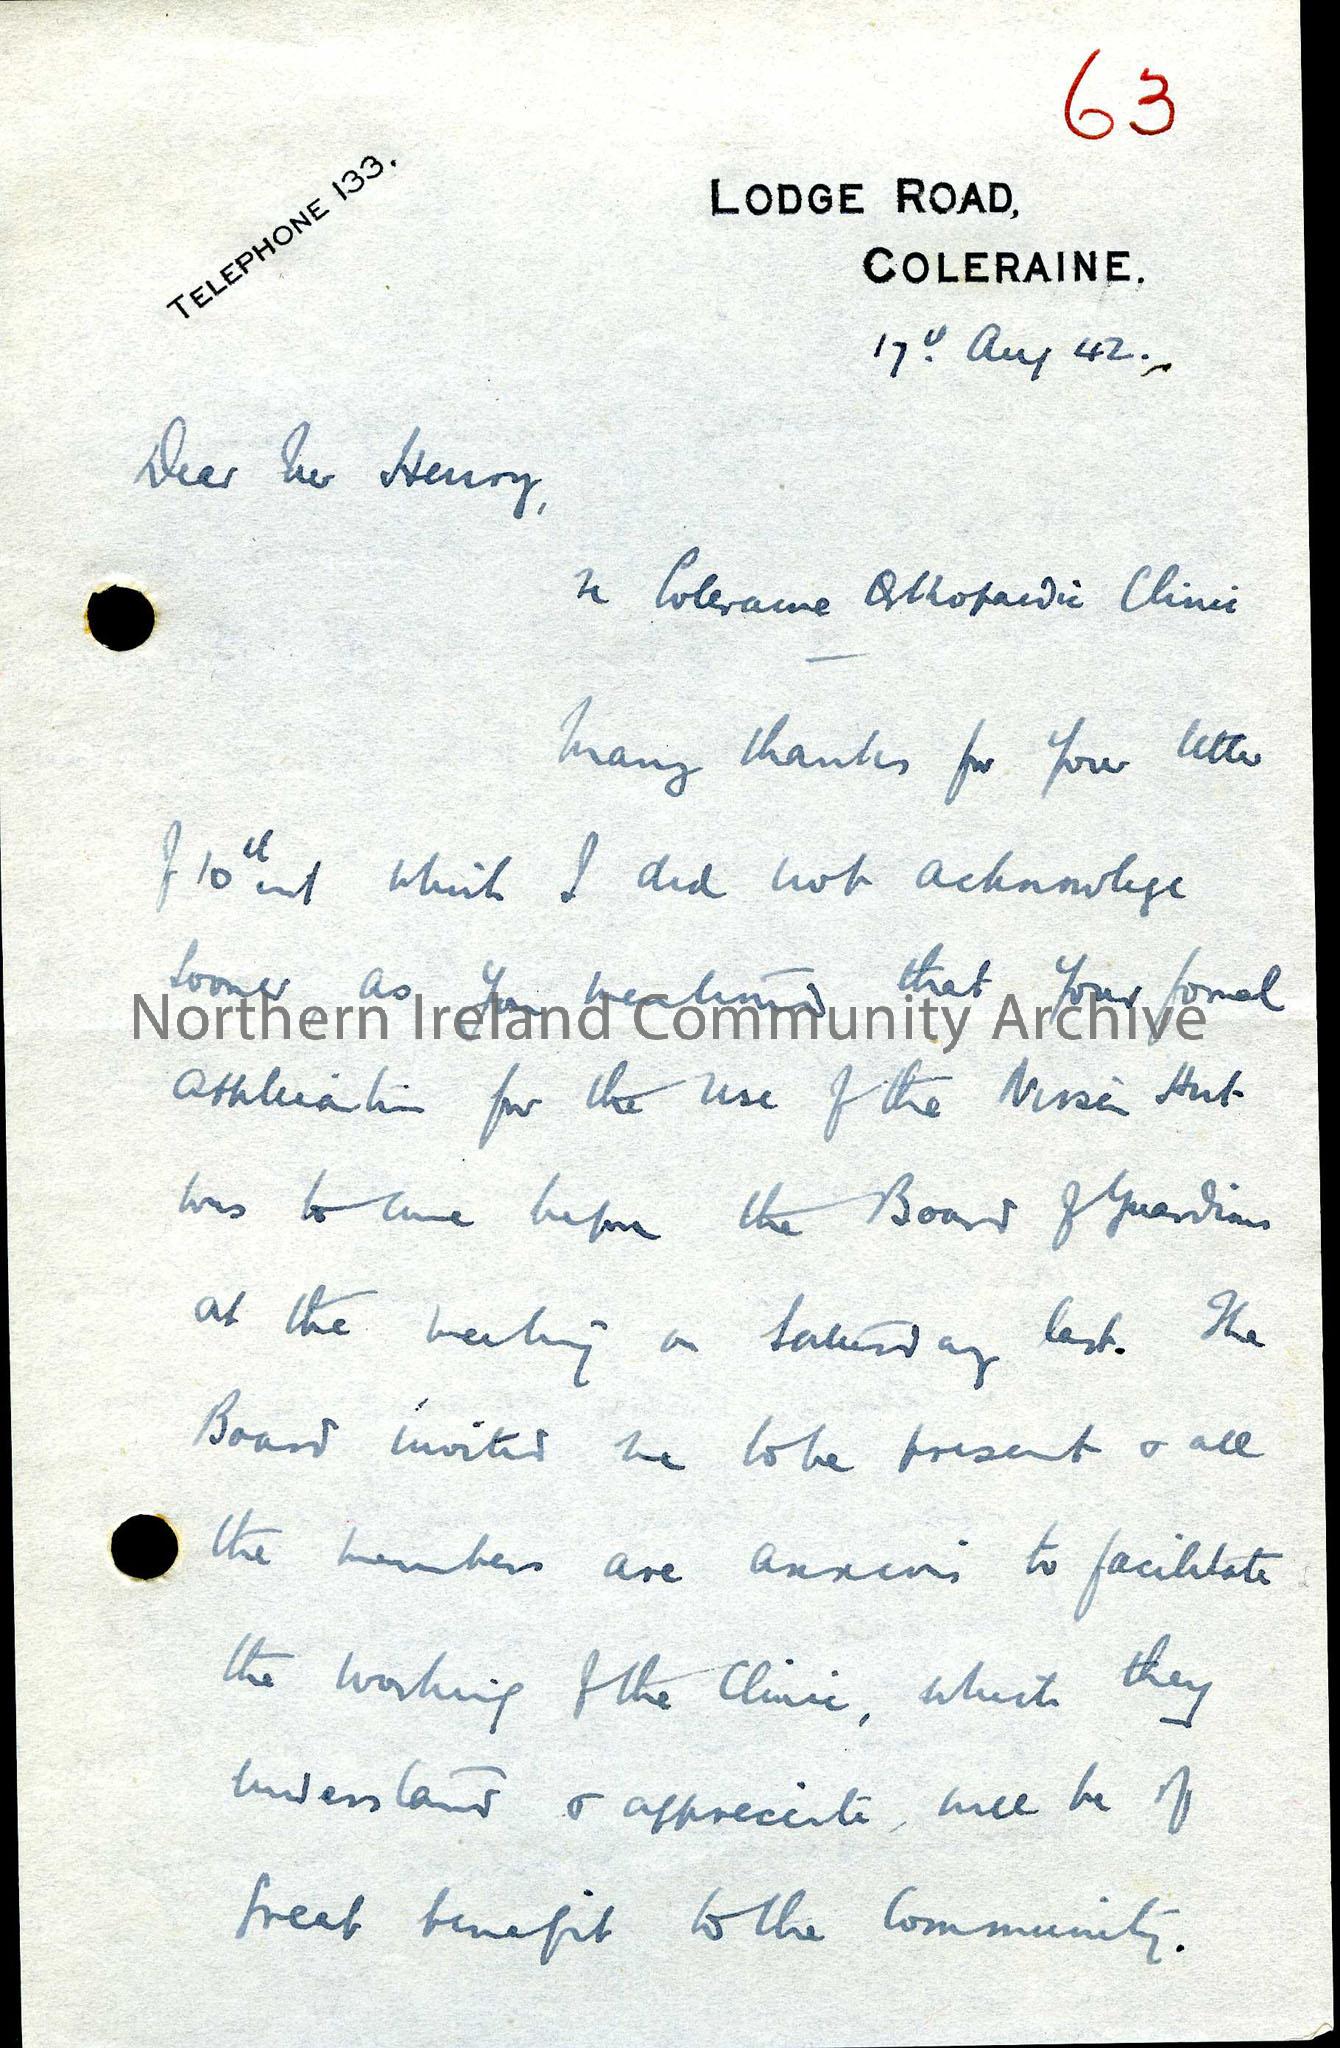 63
TELEPHONE 133.
LODGE ROAD,
COLERAINE.
17th Aug 42.
Dear Mr Henry,
re Coleraine Orthopaedic Clinic
Many thanks for your letter
of 10th inst which I did not acknowlege
sooner as you mentioned that your formal
application for the use of the Nissen Hut
was to come before the Board of Guardians
at the meeting on Saturday last. The
Board invited me to be present & all
the members are anxious to facilitate
the working of the Clinic, which they
understand & appreciate, will be of
great benefit to the Community.
Northern Ireland Community Archive